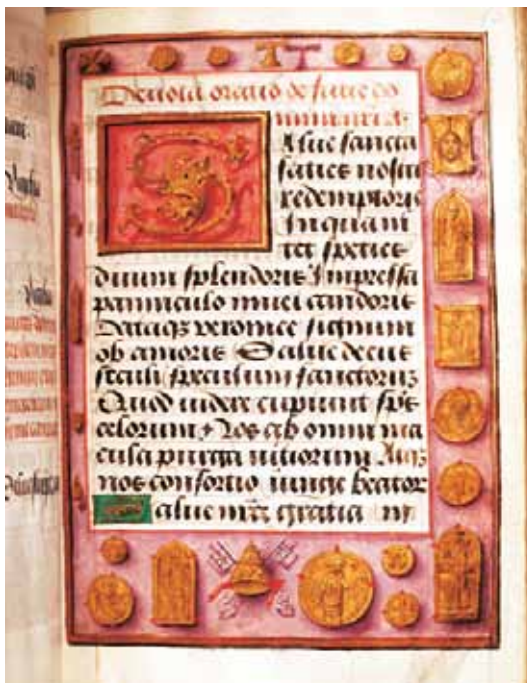 Deuota oratio de facie do
SAlue sancta
facies nostri
redemptoris
In qua ni
tet species
diuini splendoris Impressa
panniculo niuei candoris
Dataqz veronice signum
ob amoris Salue decus
seculi speculum sanctoruz
Quod videre cupiunt sps
celorum Nos ab omni ma
cula purga vitiorum Atqz
nos consortio iunge beator
Salue nra gratia in